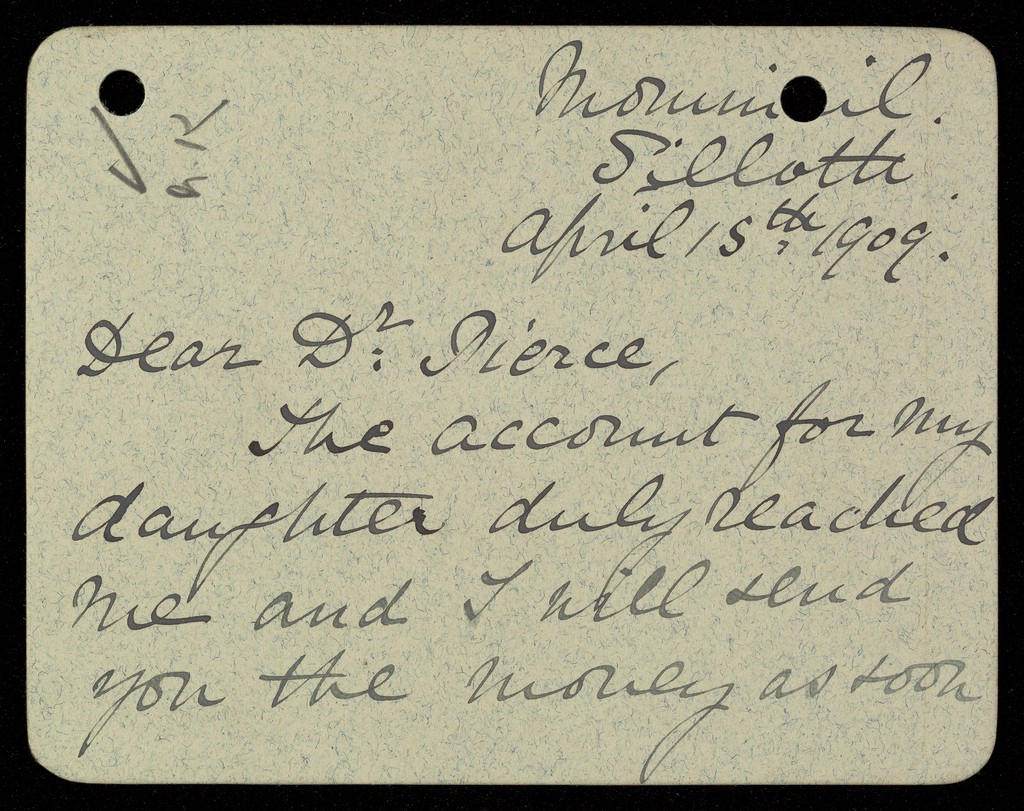 Silloth
April 15th. 1909.
Dear Dr. Pierce,
The account for my
daughter duly reached
me and I will send
you the money as soon